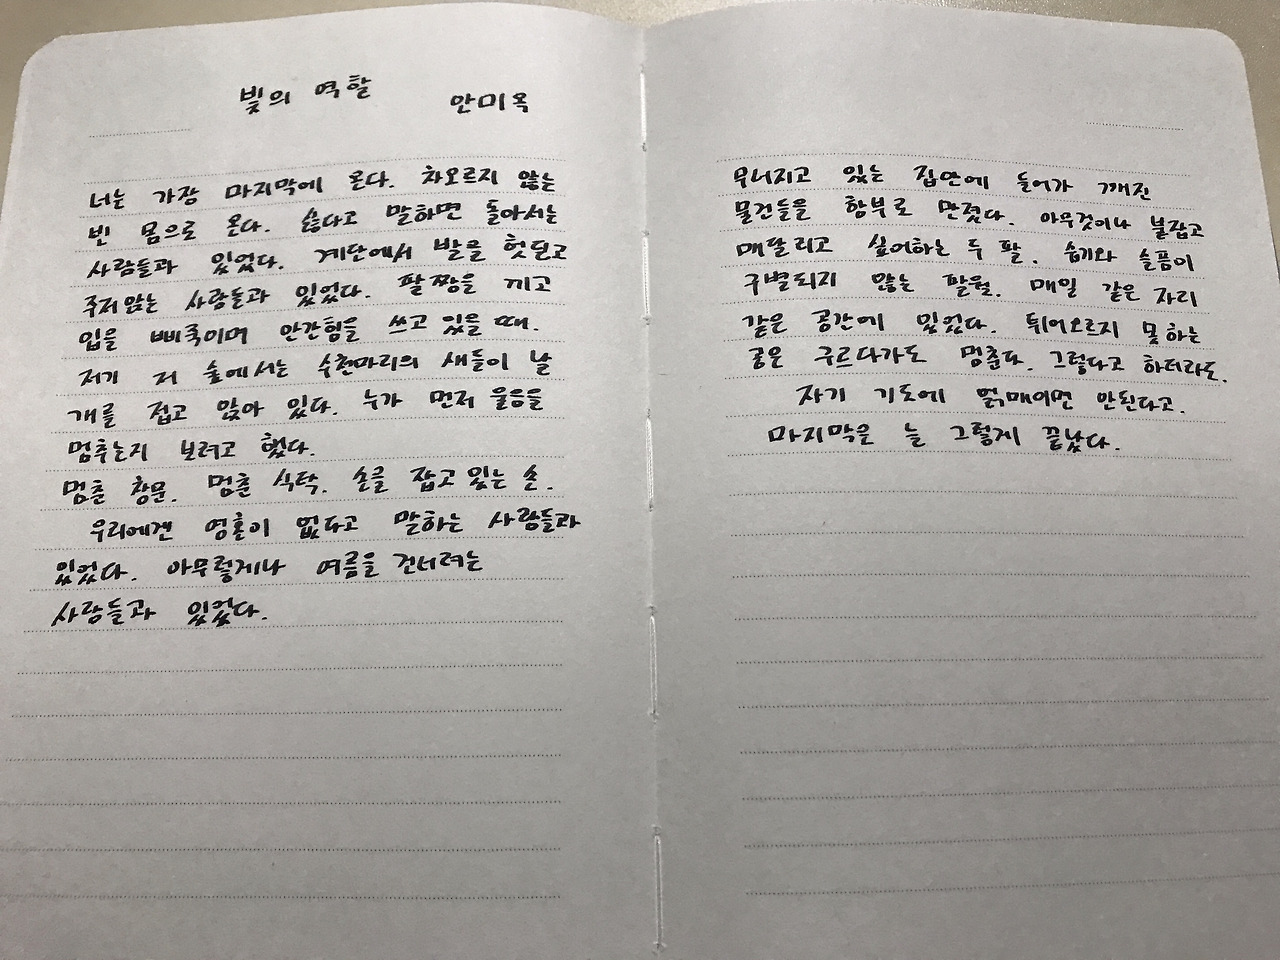 빛의 역할
안미옥
너는 가장 마지막에 온다. 차오르지 않는
빈 몸으로 온다. 싫다고 말하면 돌아서는
사람들과 있었다. 계단에서 발을 헛딛고
주저앉는 사람들과 있었다. 팔짱을 끼고
입을 삐죽이며 안간힘을 쓰고 있을 때.
저기 저 숲에서는 수천마리의 새들이 날
개를 접고 앉아 있다. 누가 먼저 울음을
멈추는지 보려고 했다.
멈춘 창문. 멈춘 식탁. 손을 잡고 있는 손.
우리에겐 영혼이 없다고 말하는 사람들과
있었다. 아무렇게나 여름을 건너려는
사람들과 있었다.
무너지고 있는 집안에 들어가 깨진
물건들을 함부로 만졌다. 아무것이나 붙잡고
매달리고 싶어하는 두 팔. 습기와 슬픔이
구별되지 않는 팔월. 매일 같은 자리
같은 공간에 있었다. 튀어오르지 못하는
공은 구르다가도 멈춘다. 그렇다고 하더라도.
자기 기도에 얽매이면 안된다고.
마지막은 늘 그렇게 끝났다.